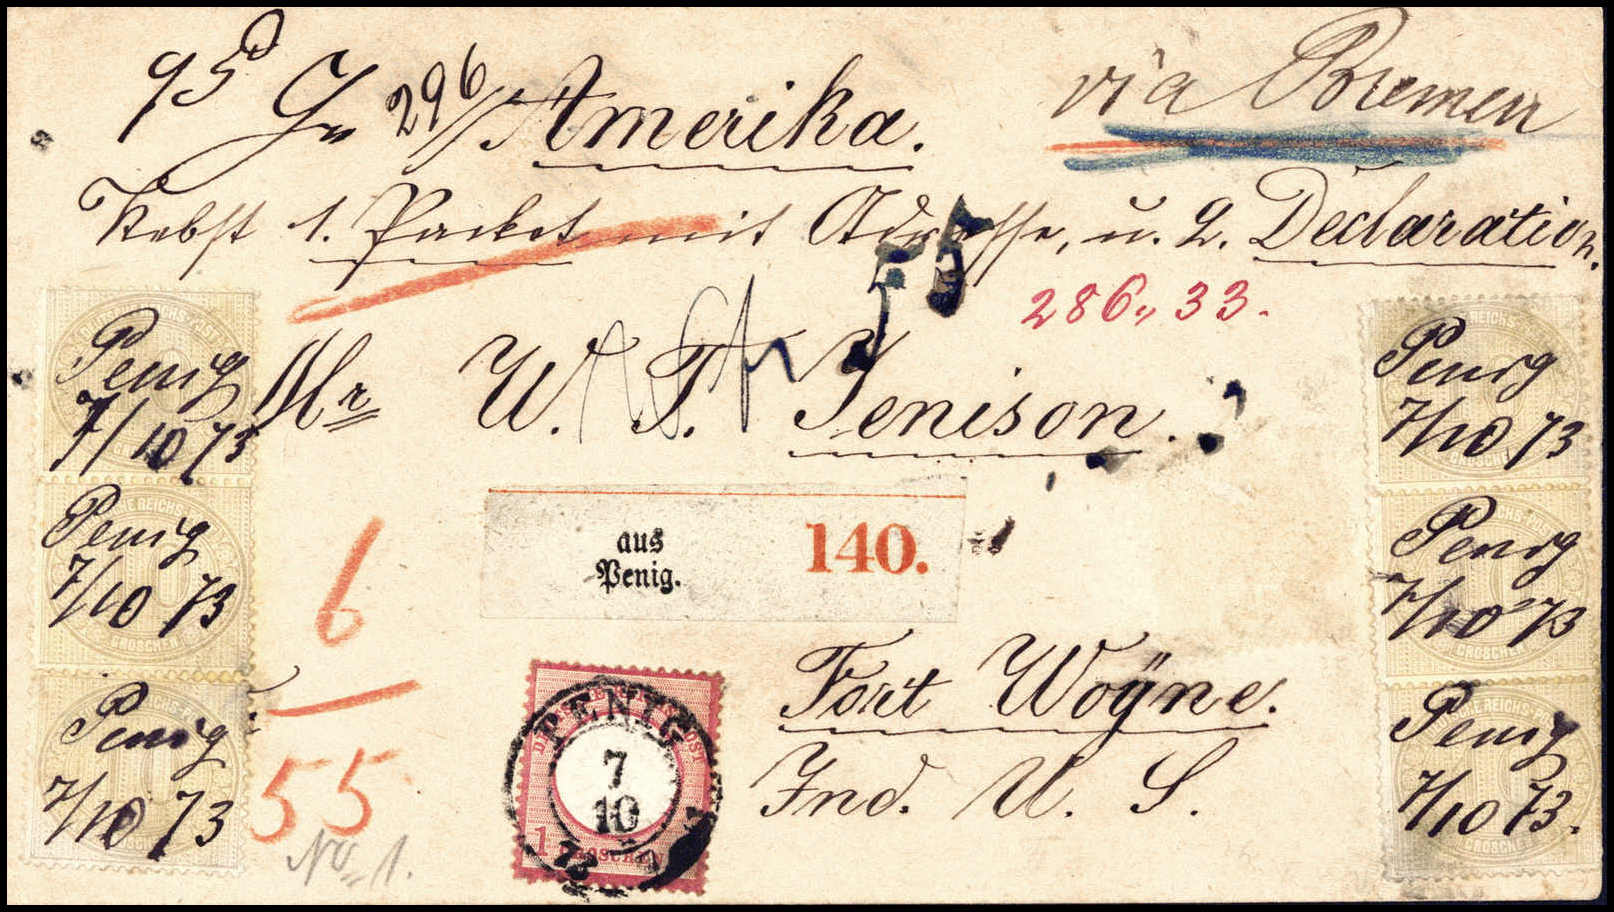 95 Gr 296/ Amerika.
via Bremen
Nebst 1. Packet mit Adresse, u. 2. Declaration.
55
286,, 33.
Mr W. T. Jenison.
aus
Penig.
140.
Fort Woÿne.
Ind. U. S.
6
55
No 1.
Penig
7/10 73
Penig
7/10 73
Penig
7/10 73
PENIG
7
10
73
1 GROSCHEN
Penig
7/10 73
Penig
7/10 73
GROSCHEN
Penig
7/10 73.
GROSCHEN